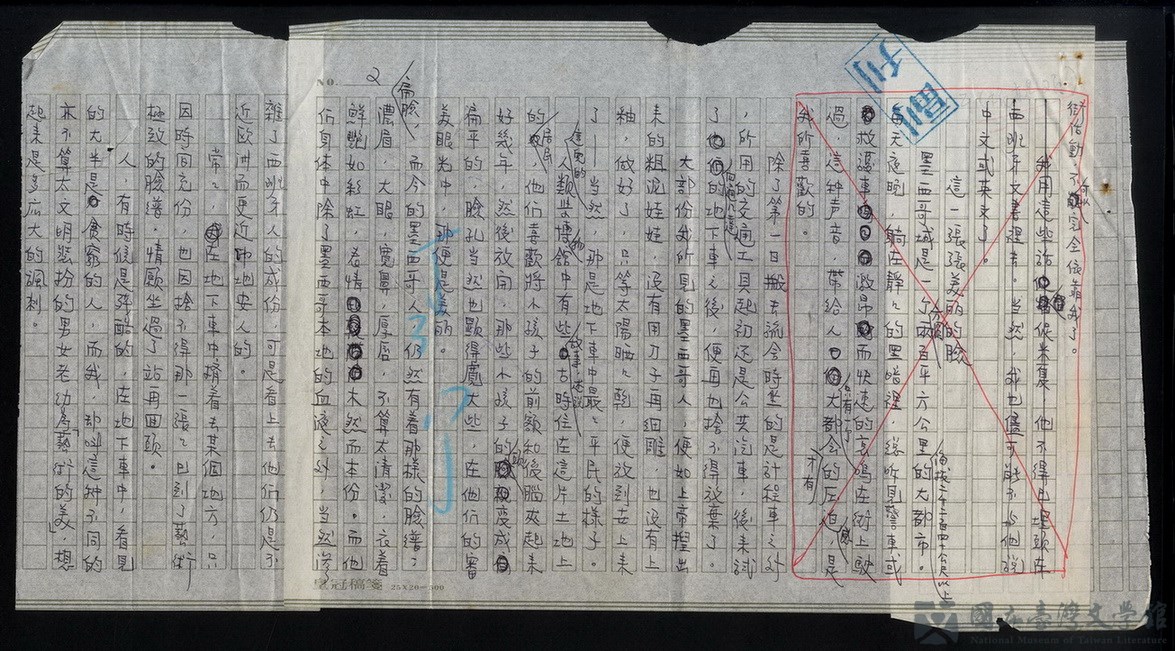 街活動，不可以完全依靠我了。
我用這些話
西班牙文書裡去。當然，我也儘可能不與他說
中文或英文了。
這一張張美麗的臉
墨西哥城是一個
百平方公里的大都市。
每天夜晚，躺在靜靜的黑暗裡，總聽見警車或
救護車
而快速的哀鳴在街上駛
過。這種聲音，帶給人
大都會的壓迫
是
我所喜歡的。
除了第一日搬去旅舍時坐的是計程車之外
，所用的交通工具起初還是公共汽車，後來試
了
的地下車之後，便再也捨不得放棄了
。
大部份我所見的墨西哥人，便如上帝捏出
來的粗泥娃娃，沒有用刀子再細雕，也沒有上
釉，做好了，只等太陽晒晒乾，便放到世上來
了——當然，那是地下車中最最平民的樣子。
人類學博館中有些故事述說，古時住在這片土地上
的居民，他們喜歡將小孩子的前額和後腦夾起來
好幾年，然後放開，那些小孩子的
變成
扁平的，臉孔當然也顯得寬大些，在他們的審
美眼光中，那便是美麗。
2
扁臉，
而今的墨西哥人，仍然有著那樣的臉譜；
濃眉，大眼，寬鼻，厚唇，不算太清潔，衣着
鮮艷如彩虹，表情
木然而本份。而他
們身體中除了墨西哥本地的血液之外，當然滲
雜了西班牙人的成份，可是看上去他們仍是不
近歐洲而更近印地安人的。
常常，
在地下車中擠着去某個地方，只
因時間充份，也因捨不得那一張張已到了藝術
極致的臉譜，情願坐過了站再回頭。
人，有時候是殘酷的，在地下車中，看見
的大半是貧窮的人，而我，卻叫這種不同的
亦不算太文明裝扮的男女老幼為「藝術的美」，想
起來是多麼大的諷刺。
副刊
NO.
皇冠稿箋 25×20=500
國立臺灣文學館
National Museum of Taiwan Literature